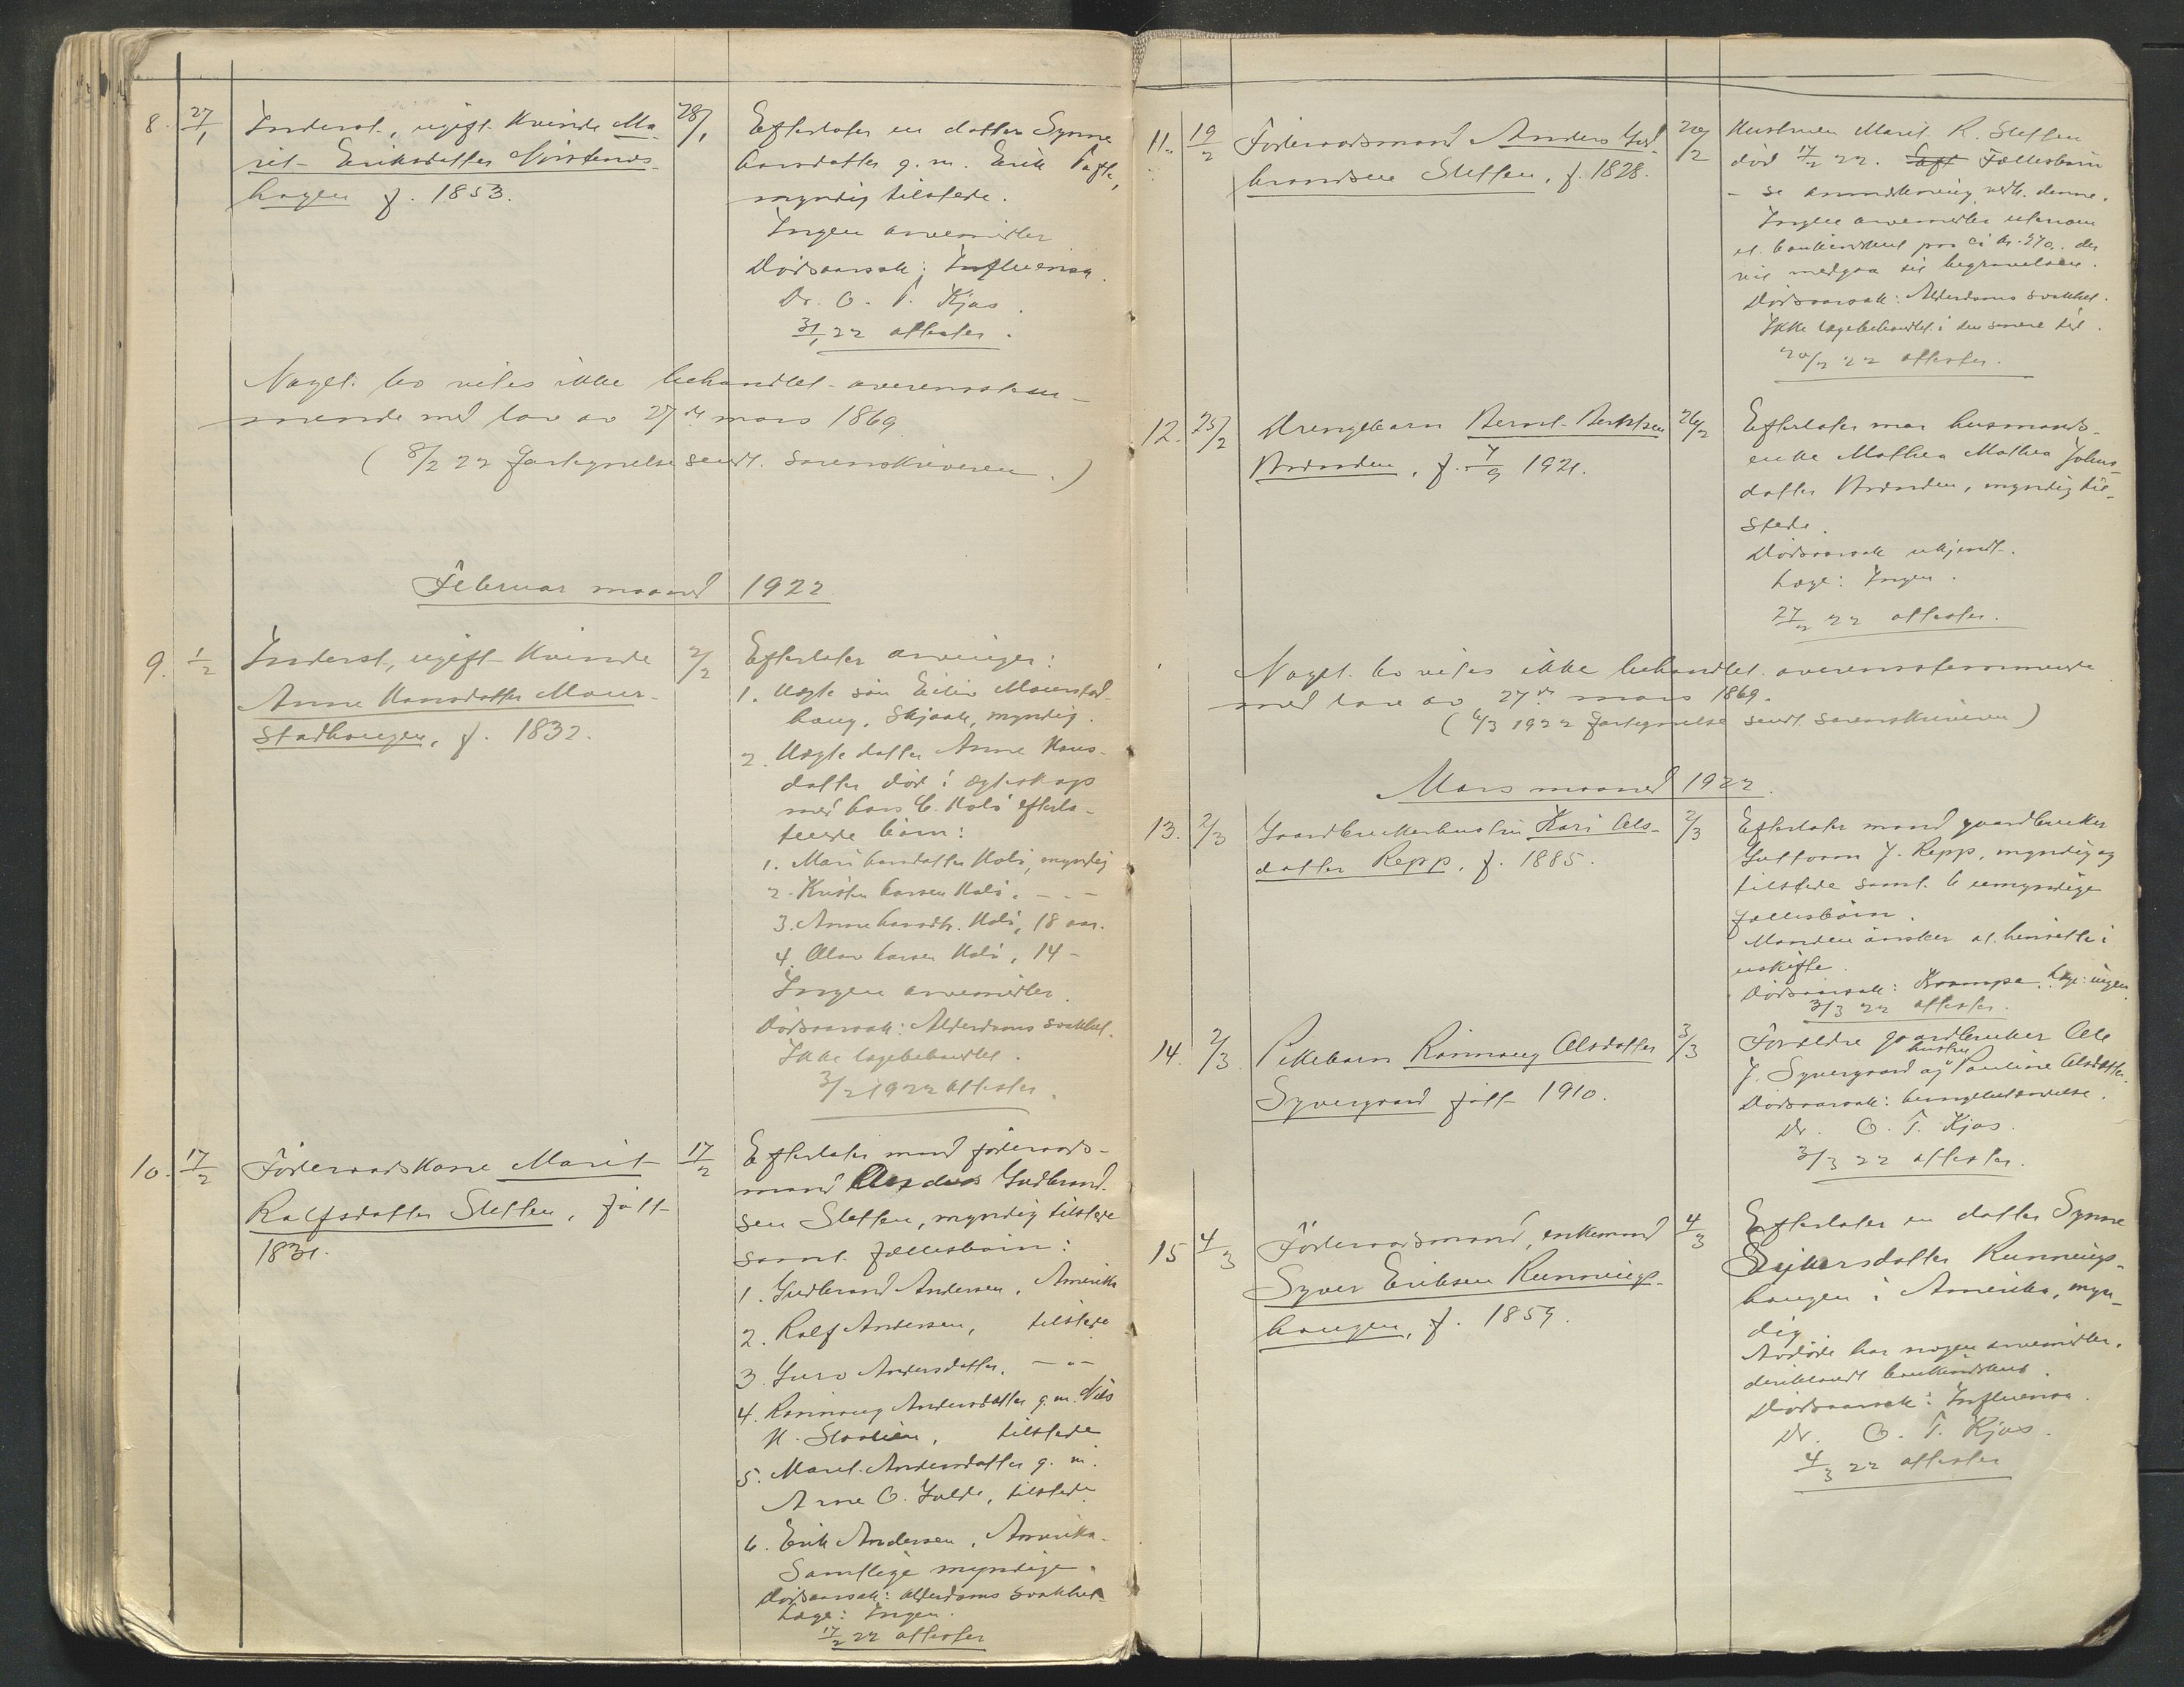 8. 27/1 Inderst, ugift kvinde Ma-
rit Eriksdatter
hagen f. 1853.
28/1 Efterlater en datter Synne
Larsdatter g. m. Erik
myndig tilstede.
Ingen arvemidler
Dödsaarsak: Influensa.
Dr. O. T. Kjos.
31/1 22 attester.
Noget bo vites ikke behandlet overensstem-
mende med lov av 27de mars 1869.
(8/2 22 fortegnelse sendt sorenskriveren.)
Februar maaned 1922
9. 1/2 Inderst, ugift kvinde
Anne Hansdatter Mour-
stadhaugen, f. 1832.
2/2 Efterlater arvinger:
1. Uegte sön Eiliv Mourstad-
haug, Skjaak, myndig.
2. Uegte datter Anne Hans-
datter död i egteskap
med Lars C. Holö efterla-
tende börn:
1. Mari Larsdatter Holö, myndig
2. Kristen Larsen Holö. - " -
3. Anne Larsdtr. Holö, 18 aar.
4. Olav Larsen Holö, 14 -
Ingen arvemidler.
Dödsaarsak: Alderdoms svakhet.
Ikke lægebehandlet.
3/2 1922 attester.
10. 17/2 Föderaadskone Marit
Rolfsdatter Sletten, fött
1831.
17/2 Efterlater mand föderaads-
mand Anders Gudbrand-
sen Sletten, myndig tilstede
samt fællesbörn:
1. Gudbrand Andersen, Amerika
2. Rolf Andersen, tilstede
3. Guro Andersdatter, - " -
4. Rönnaug Andersdatter g. m. Nils
N. tilstede
5. Marit Andersdatter g. m.
Arne O. Folde, tilstede
6. Erik Andersen, Amerika.
Samtlige myndige.
Dödsaarsak: Alderdoms svakhet
Læge: Ingen.
17/2 22 attester
11. 19/2 Föderaadsmand Anders Gud-
brandsen Sletten, f. 1828.
20/2 Hustruen Marit R. Sletten
död 17/2 22. Fællesbörn
- se anmerkning vedk. denne.
Ingen arvemidler utenom
et bankindskud paa ca kr. 270. der
vil medgaa til begravelsen.
Dödsaarsak: Alderdoms svakhet.
Ikke lægebehandlet i den senere tid.
20/2 22 attester.
12. 25/2 Drengebarn Bernt Berntsen
f. 7/9 1921.
26/2 Efterlater mor husmands-
enke Mathea Mathea Johns-
datter myndig til-
stede.
Dödsaarsak ukjendt.
Læge: Ingen.
27/2 22 attester.
Noget bo vites ikke behandlet overensstemmende
med lov av 27de mars 1869.
(6/3 1922 fortegnelse sendt sorenskriveren)
Mars maaned 1922
13. 2/3 Gaardbrukerhustru Kari Ols-
datter Repp, f. 1885.
2/3 Efterlater mand gaardbruker
Guttorm J. Repp, myndig og
tilstede samt 6 umyndige
fællesbörn.
Manden önsker at hensitte i
uskifte.
Dödsaarsak: Krampe. Læge: ingen.
3/3 22 attester.
14. 2/3 Pikebarn Rönnaug Olsdatter
Syvergaard född 1910.
3/3 Foreldre gaardbruker Ole
J. Syvergaard og hustru Pauline Olsdatter.
Dödsaarsak: Lungebetændelse.
Dr. O. T. Kjos.
3/3 22 attester.
15 4/3 Föderaadsmand, enkemand
Syver Eriksen Runnings-
haugen, f. 1859.
4/3 Efterlater en datter Synne
Syversdatter Runnings-
haugen i Amerika, myn-
dig.
Avdöde har nogen arvemidler,
deriblandt bankindskud.
Dödsaarsak: Influensa.
Dr. O. T. Kjos.
4/3 22 attester